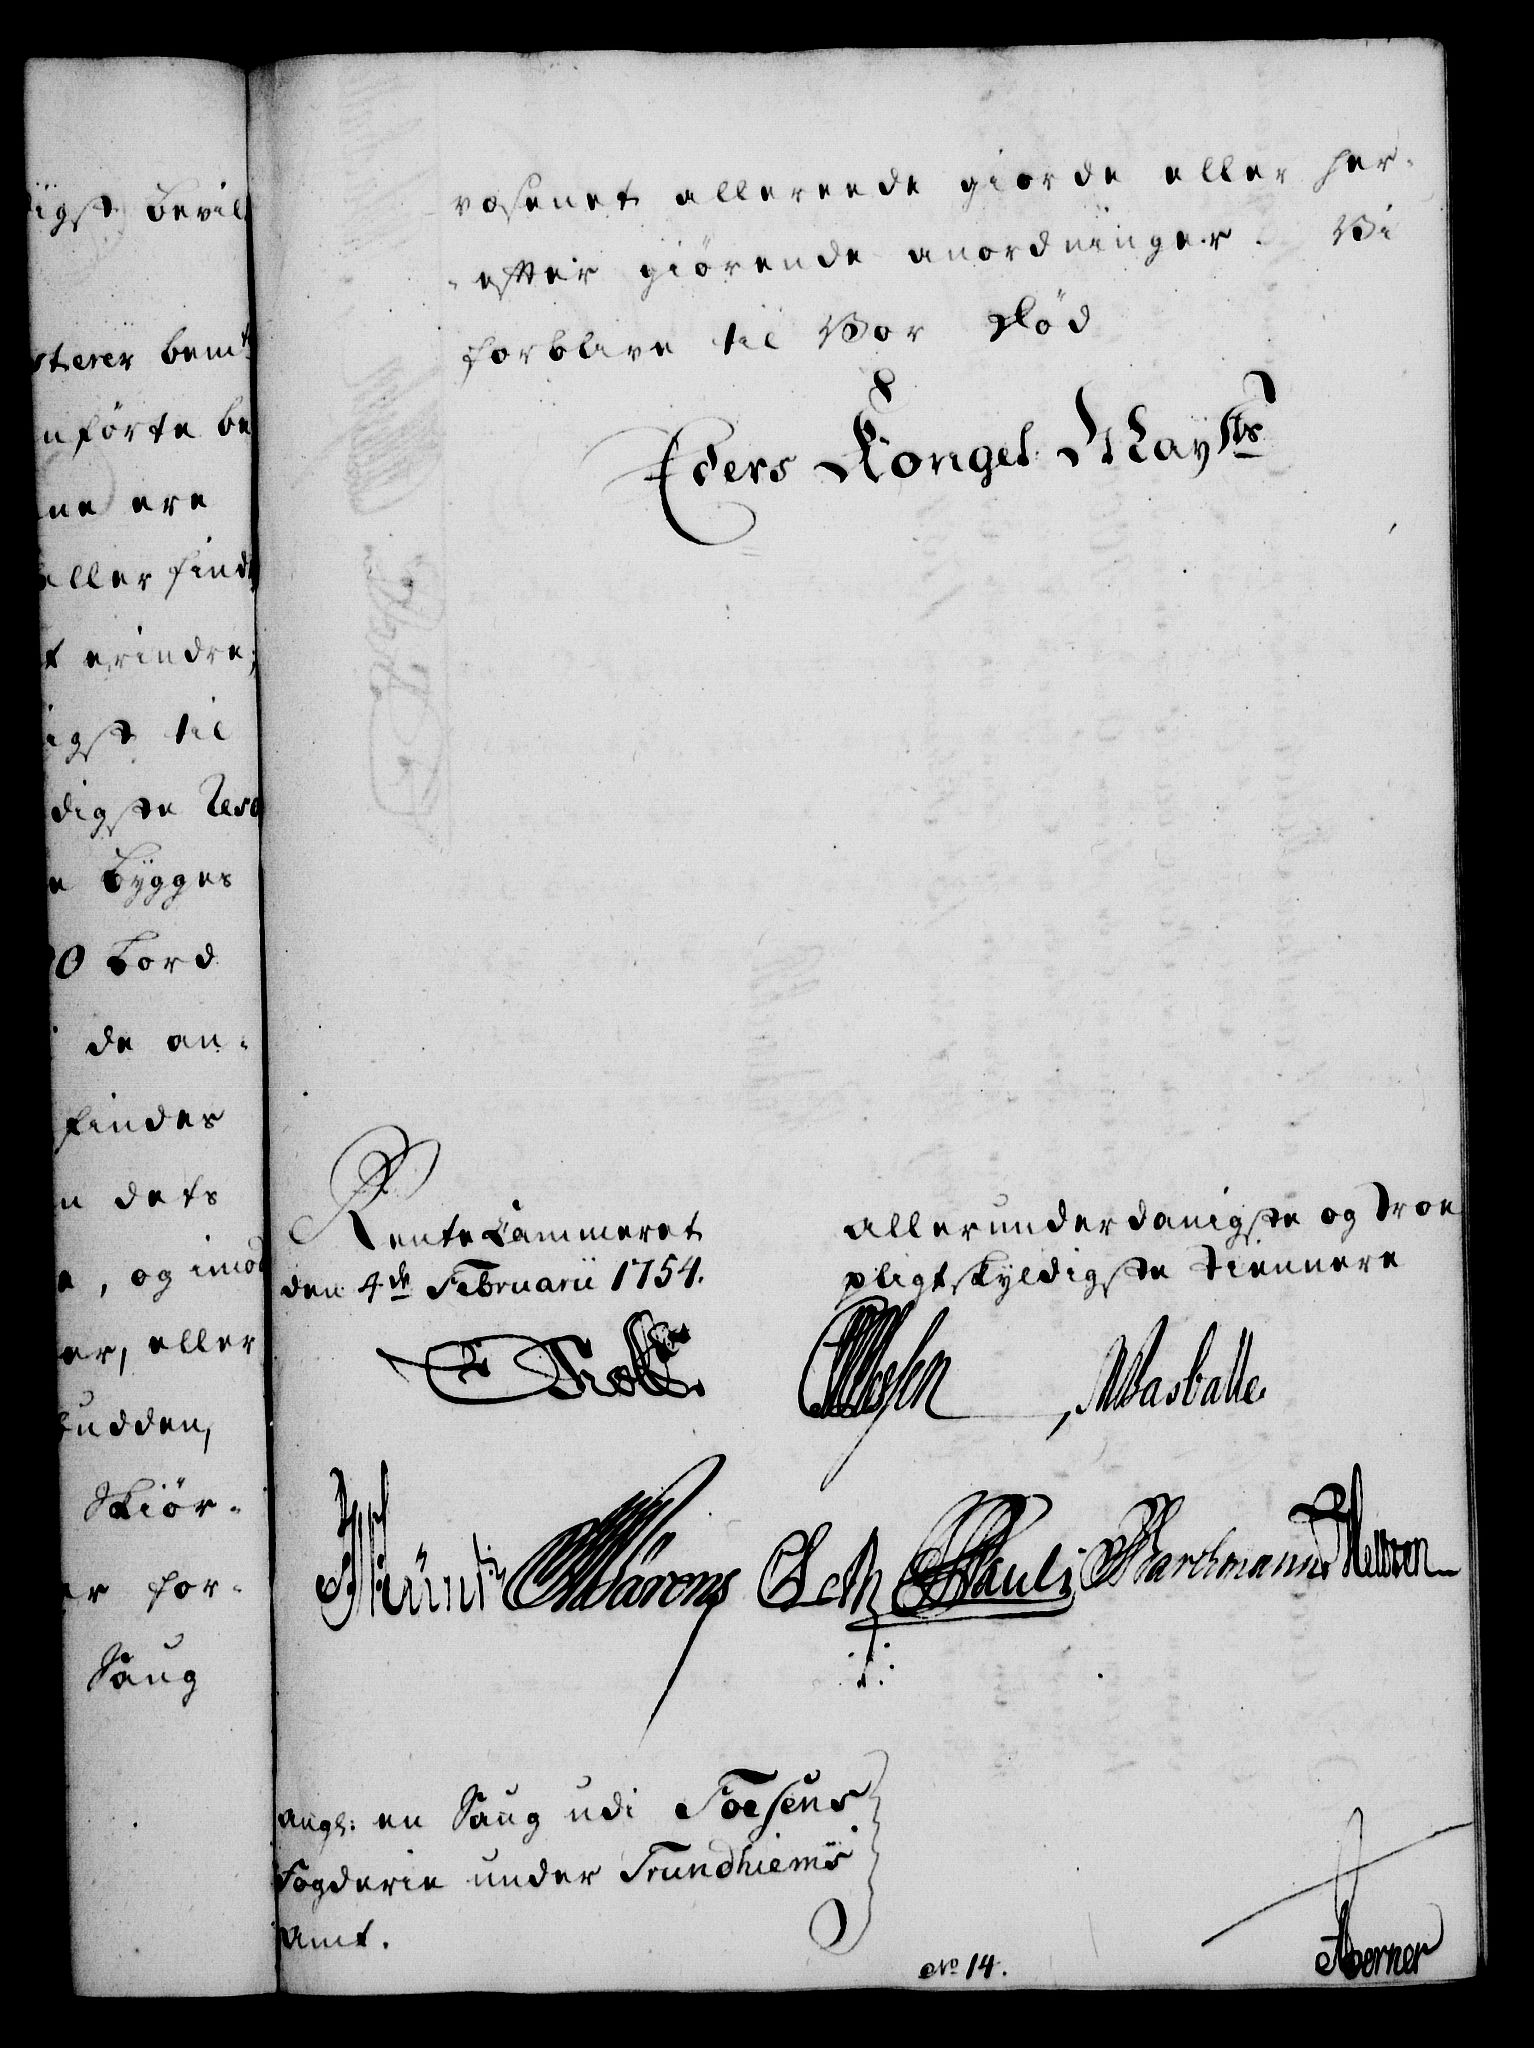 igst bevil
sterer bemte
nførte be
ne ere
eller find
t erindre;
igst til
digste Reso
e bygges
0 Bord
de an-
findes
n dets
e, og imod
er, eller
budden,
Skiør-
er for-
Saug
væsenet allereede giorde eller her-
-efter giørende anordninger. Vi
forblive til Vor Død
Eders Kongel. Mayts
Rente Cammeret
den 4de Februarii 1754.
allerunderdanigste og troe
pligtskyldigste Tiennere
Holst
Masballe.
Pauli Barchmann
ang: en Saug udi Foesens
Fogderie under Trundhiems
Amt.
No 14.